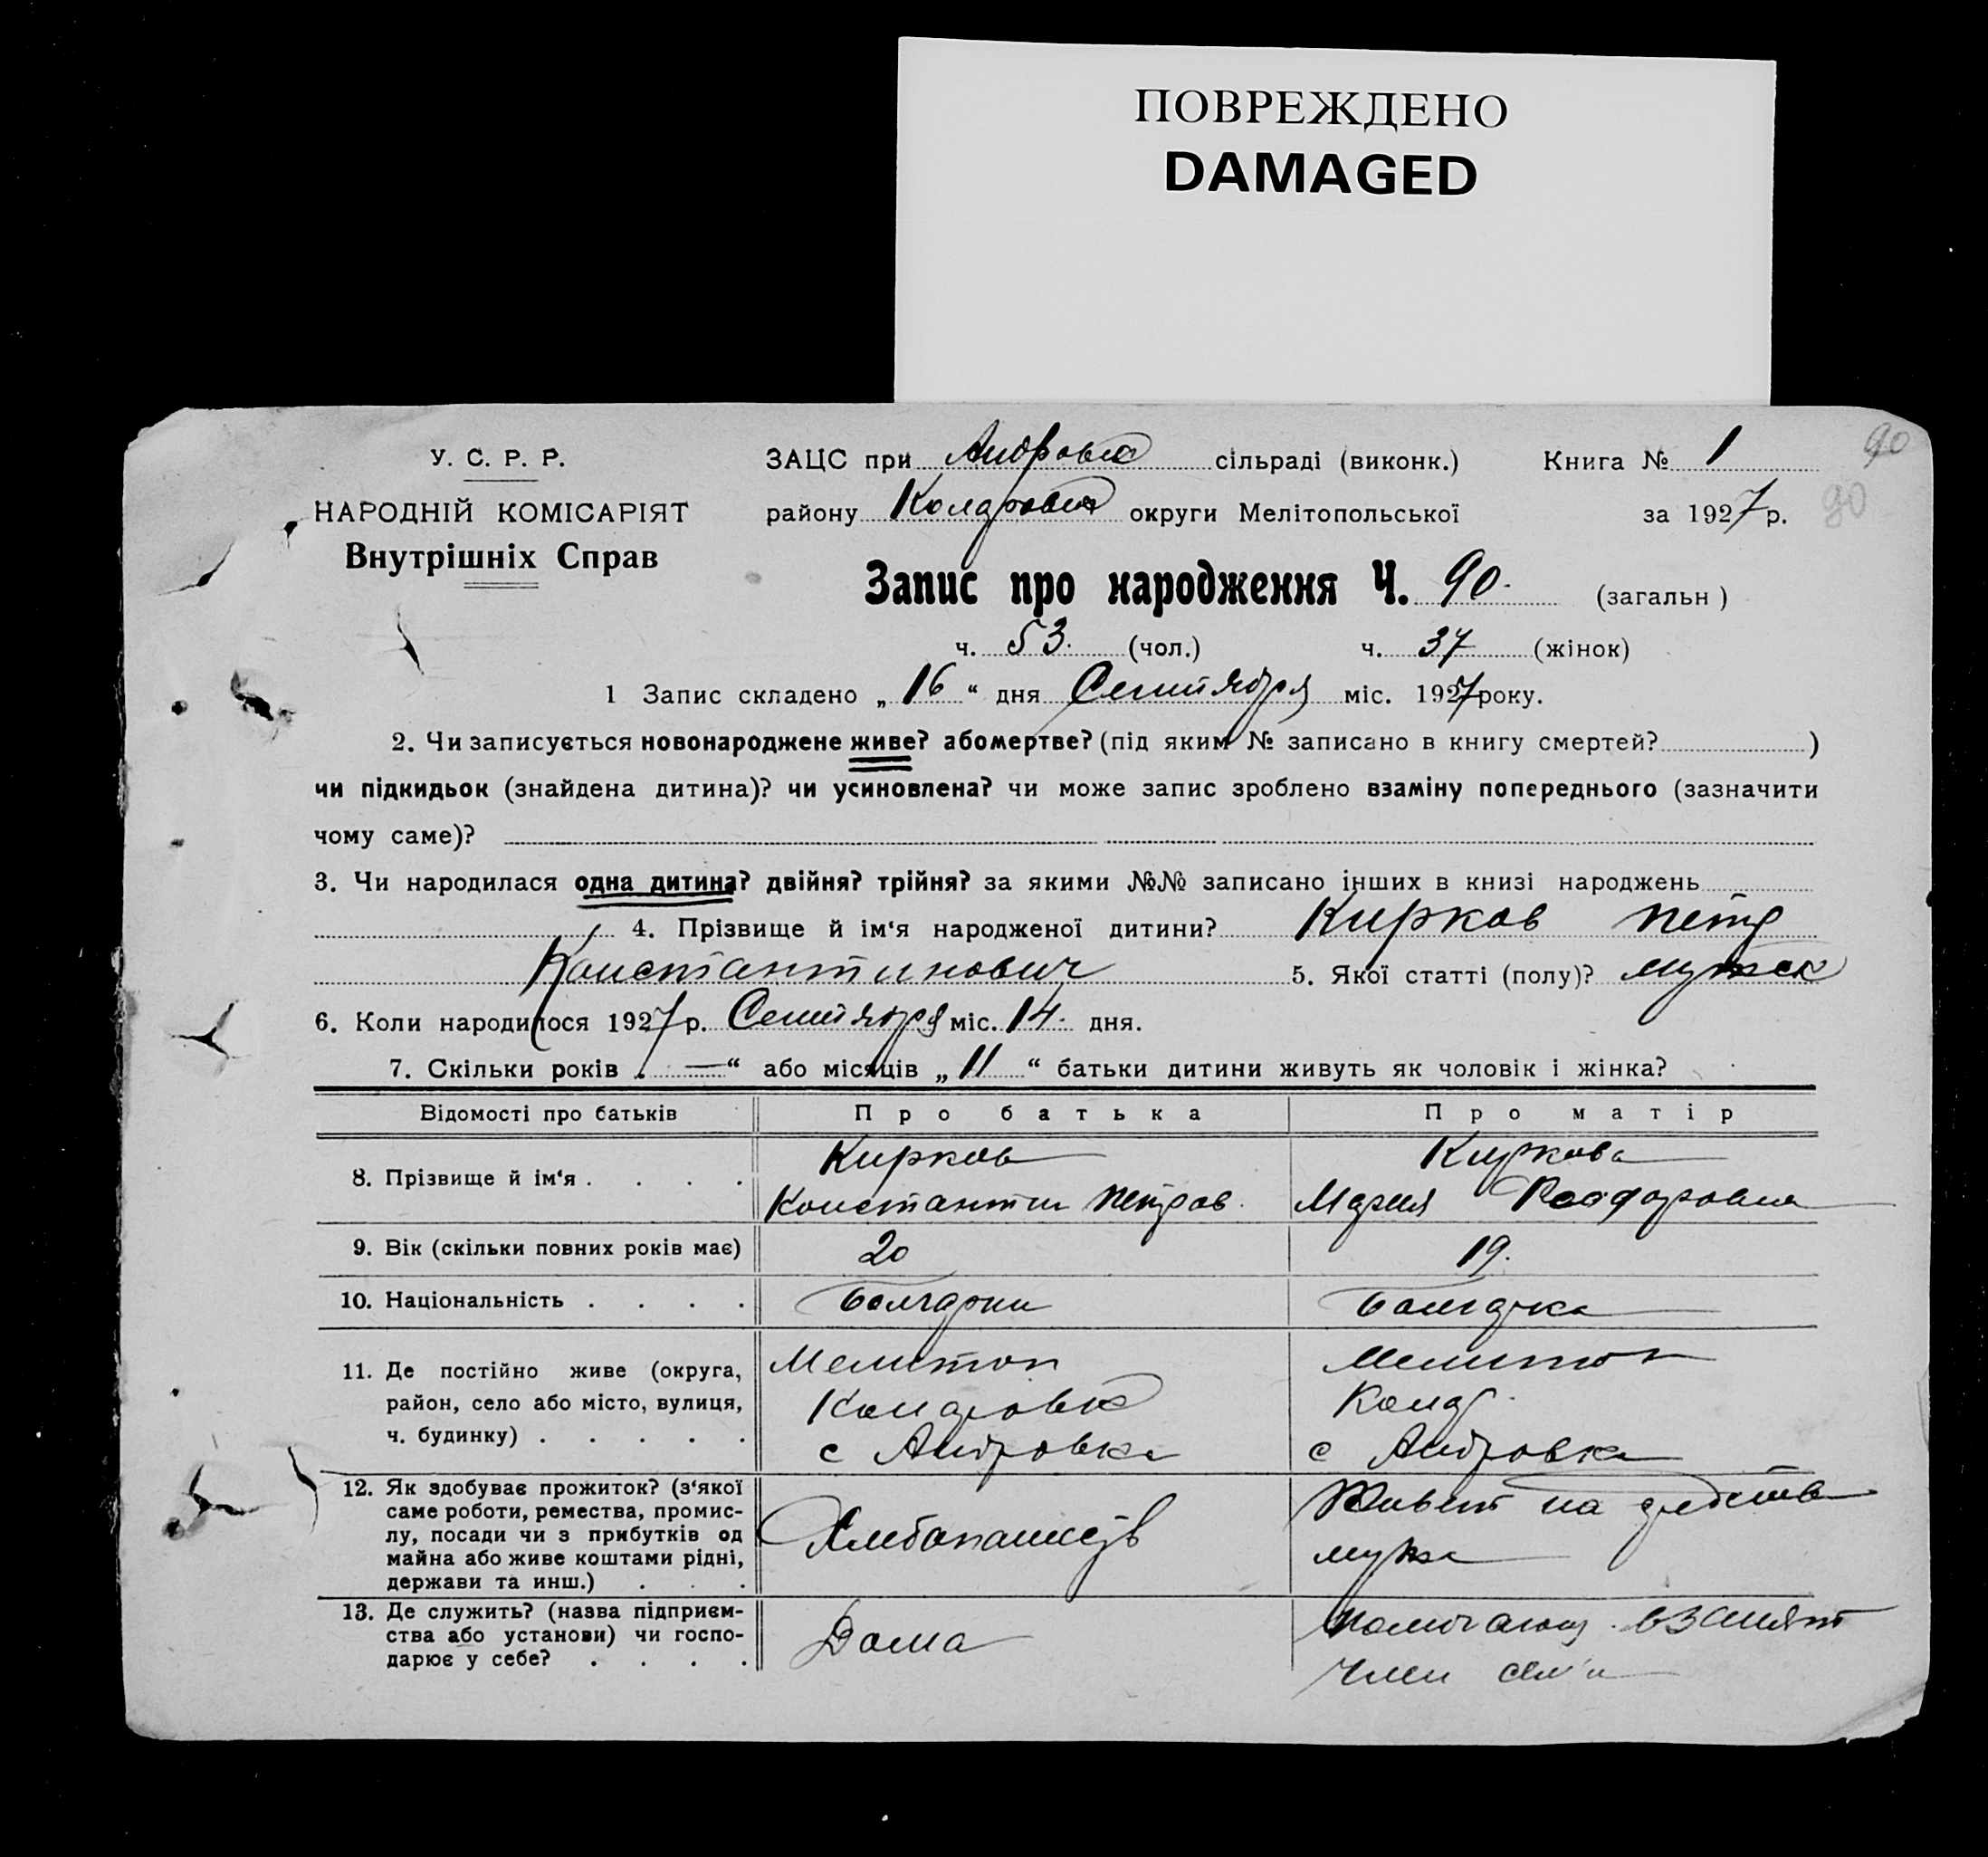 ПОВРЕЖДЕНО
DAMAGED
У. С. Р. Р.
НАРОДНІЙ КОМІСАРІЯТ
Внутрішніх Справ
ЗАЦС при Андровка сільраді (виконк.) Книга № 1 90
району Коларовка округи Мелітопольської за 1927 р. 90
Запис про народження Ч. 90. (загальн )
ч. 53. (чол.) ч. 37 (жінок)
1 Запис складено „ 16 “ дня Сентября міс. 1927 року.
2. Чи записується новонароджене живе? або мертве? (під яким № записано в книгу смертей? )
чи підкидьок (знайдена дитина)? чи усиновлена? чи може запис зроблено взаміну попереднього (зазначити
чому саме)?
3. Чи народилася одна дитина? двійня? трійня? за якими №№ записано інших в книзі народжень
4. Прізвище й ім‘я народженої дитини? Кирков Петр
Константинович 5. Якої статті (полу)? мужск
6. Коли народилося 1927 р. Сентября міс. 14. дня.
7. Скільки років „ — “ або місяців „ 11 “ батьки дитини живуть як чоловік і жінка?
Відомості про батьків Про батька Про матір
8. Прізвище й ім‘я . . . . Кирков Киркова
Константин Петров. Мария
9. Вік (скільки повних років має) 20 19.
10. Національність . . . . Болгарин Болгарка
11. Де постійно живе (округа, Мелитоп Мелитоп
район, село або місто, вулиця, Коларовка Колар.
ч. будинку) . . . . . с Андровка с Андровка
12. Як здобуває прожиток? (з‘якої
саме роботи, ремества, промис-
лу, посади чи з прибутків од
майна або живе коштами рідні,
держави та инш.) . . .
Хлебопашеств
Живет на средства
мужа
13. Де служить? (назва підприєм-
ства або установи) чи госпо-
дарює у себе? . . . .
Дома
Помогающ. в занят
член сем'и